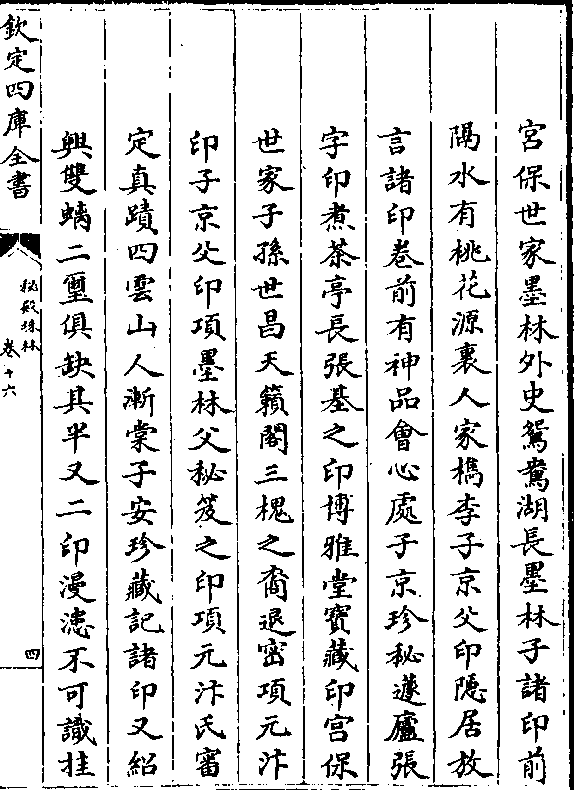 宮保世家墨林外史鴛鴦湖長墨林子諸印前
隔水有桃花源裏人家檇李子京父印隱居放
言諸印卷前有神品會心處子京珍秘蘧廬張
字印煮茶亭長張基之印博雅堂寳藏印宫保
世家子孫世昌天籟閣三槐之裔退密項元汴
印子京父印項墨林父秘笈之印項元汴氏審
定真蹟四雲山人漸棠子安珍藏記諸印又紹
興雙螭二璽俱缺其半又二印漫漶不可識拄
欽定四庫全書
秘殿珠林
卷十六
四